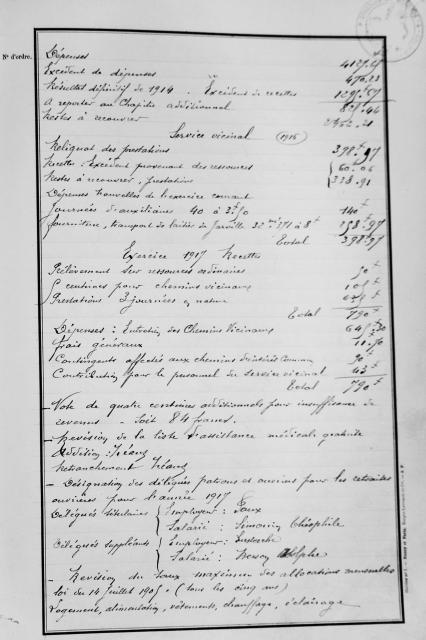 N° d'ordre.
Dépenses
Excédent de dépenses
Résultat définitif de 1914. Excédent de recettes
A reporter au Chapitre additionnel
Restes à recouvrer
Service vicinal (1916)
Reliquat des prestations 398f.97
Recette: Excédent provenant des ressources 60.06
Restes à recouvrer, prestations 338.91
Dépenses nouvelles de l'exercice courant
Journées d'auxiliaires 40 à 3f.50 140f
Fourniture, transport de laitier de Jarville 32 m3 371 à 8f 258f.97
Total 398f.97
Exercice 1917 Recettes
Prélèvement sur ressources ordinaires 50f
5 centimes pour chemins vicinaux 105f
Prestations 3 journées en nature
Total 790f
Dépenses: Entretien des Chemins Vicinaux
Frais généraux 11.50
Contingents affectés aux chemins d'intérêt Commun 90f
Contribution pour le personnel du service vicinal 43f
Total 790f
- Vote de quatre centimes additionnels pour insuffisance de
revenus - Soit 84 francs.
- Revision de la liste d'assistance médicale gratuite
Addition: Néant
Retranchement Néant
- Désignation des délégués patrons et ouvriers pour les retraites
ouvrières pour l'année 1917
Délégués titulaires { Employeur:
Salarié: Simonin Théophile
Délégués suppléants { Employeur:
Salarié:
- Revision du taux maximum des allocations mensuelles
loi du 14 juillet 1905. (tous les cinq ans)
Logement, alimentation, vêtements, chauffage, éclairage